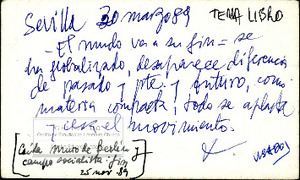 Sevilla 30 marzo 89
TEMA LIBRO
- El mundo va a su fin - se
ha globalizado, desaparece diferencia
de pasado y pte. y futuro, como
materia compacta, todo se aplasta
y cesa el movimiento.
(Caída muro de Berlín y
campo socialista: fin
25 nov 89)
USADO